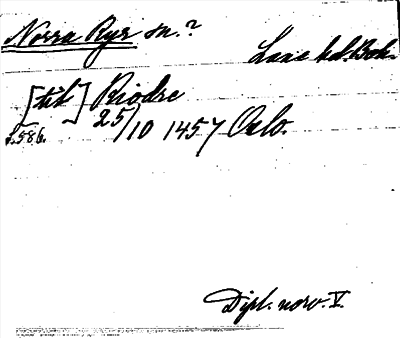 Norra Ryr sn.? Lane hd. Boh.
[till] Riodre
s.586. 25/10 1457 Oslo.
Dipl. norv. V.